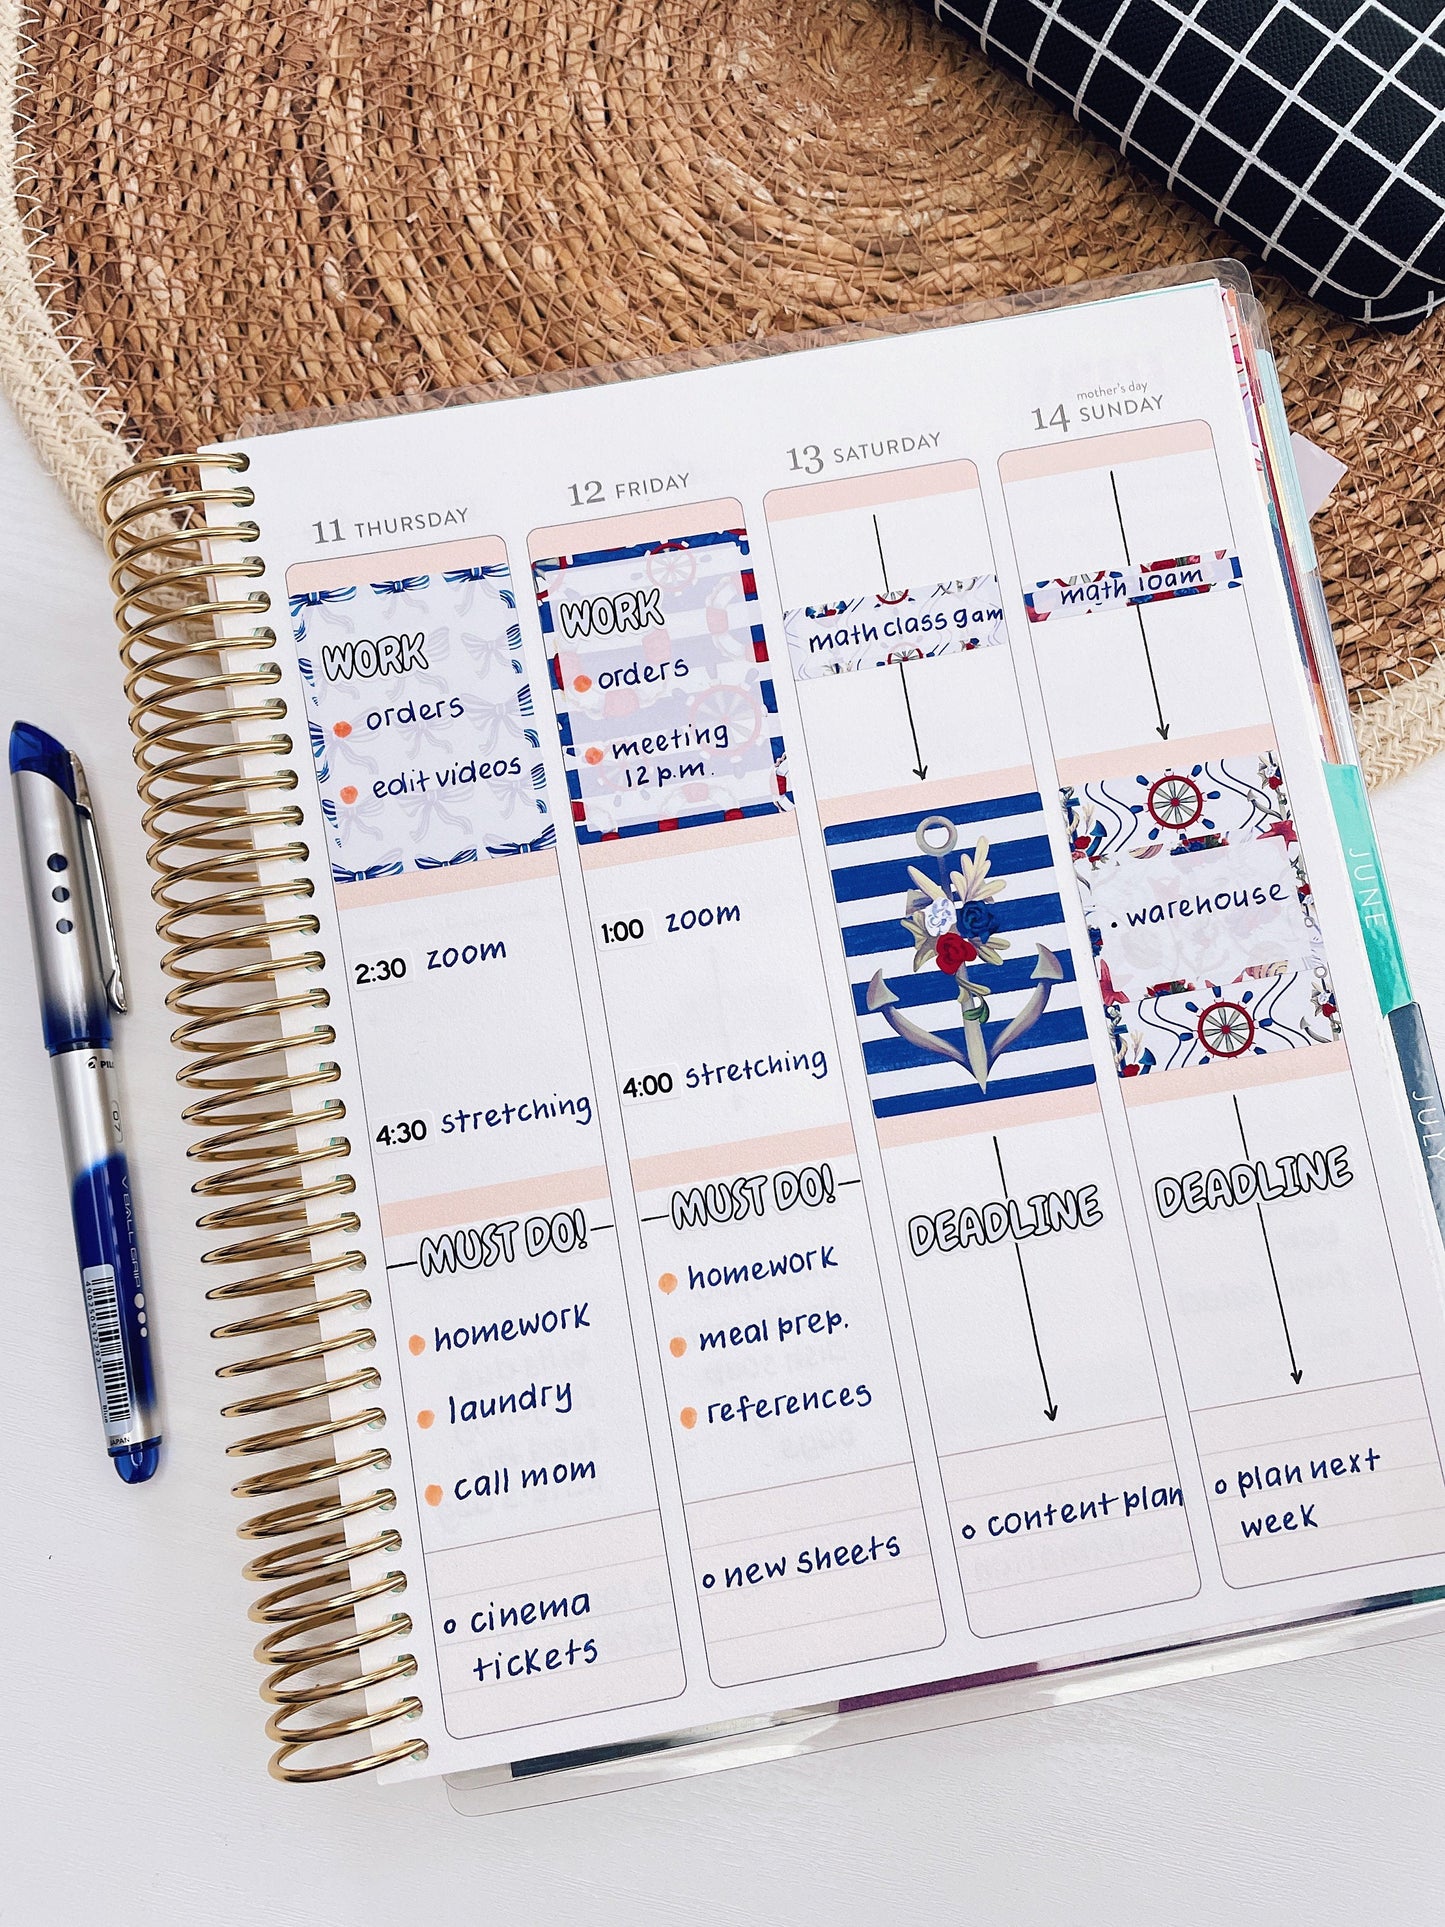 11 THURSDAY
WORK
orders
edit videos
2:30 zoom
4:30 stretching
MUST DO!
homework
laundry
call mom
cinema
tickets
12 FRIDAY
WORK
orders
meeting
12 p.m.
1:00 zoom
4:00 stretching
MUST DO!
homework
meal prep.
references
new sheets
13 SATURDAY
math class 9am
DEADLINE
content plan
mother's day
14 SUNDAY
math 10am
warehouse
DEADLINE
plan next
week
JUNE
JULY
PILOT
07
V BALL GRIP
4902505322921
Blue
JAPAN